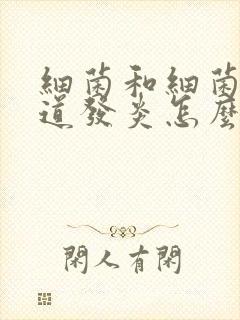 細菌和細菌
道發炎怎麼
閑人有閑